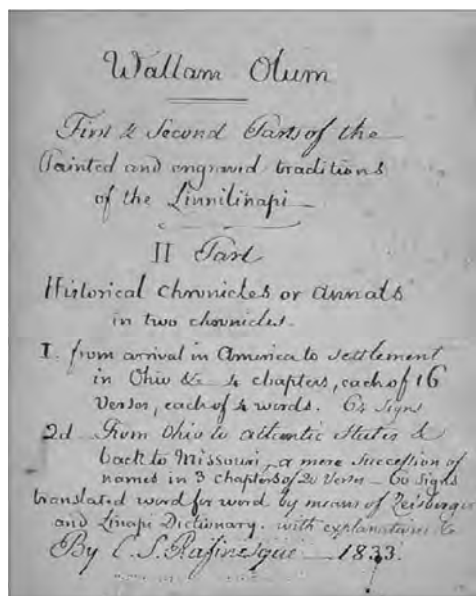 Wallam Olum
First & Second Parts of the
Painted and engraved traditions
of the Linnilinapi
II Part
Historical chronicles or annals
in two chronicles.
I. from arrival in America to settlement
in Ohio &c 4 chapters, each of 16
verses, each of 4 words. 64 signs
2d From Ohio to atlantic states &
back to Missouri, a mere succession of
names in 3 chapters of 20 verses — 60 signs
translated word for word by means of Zeisberger
and Linapi Dictionary. with explanations &c
By C. S. Rafinesque — 1833.